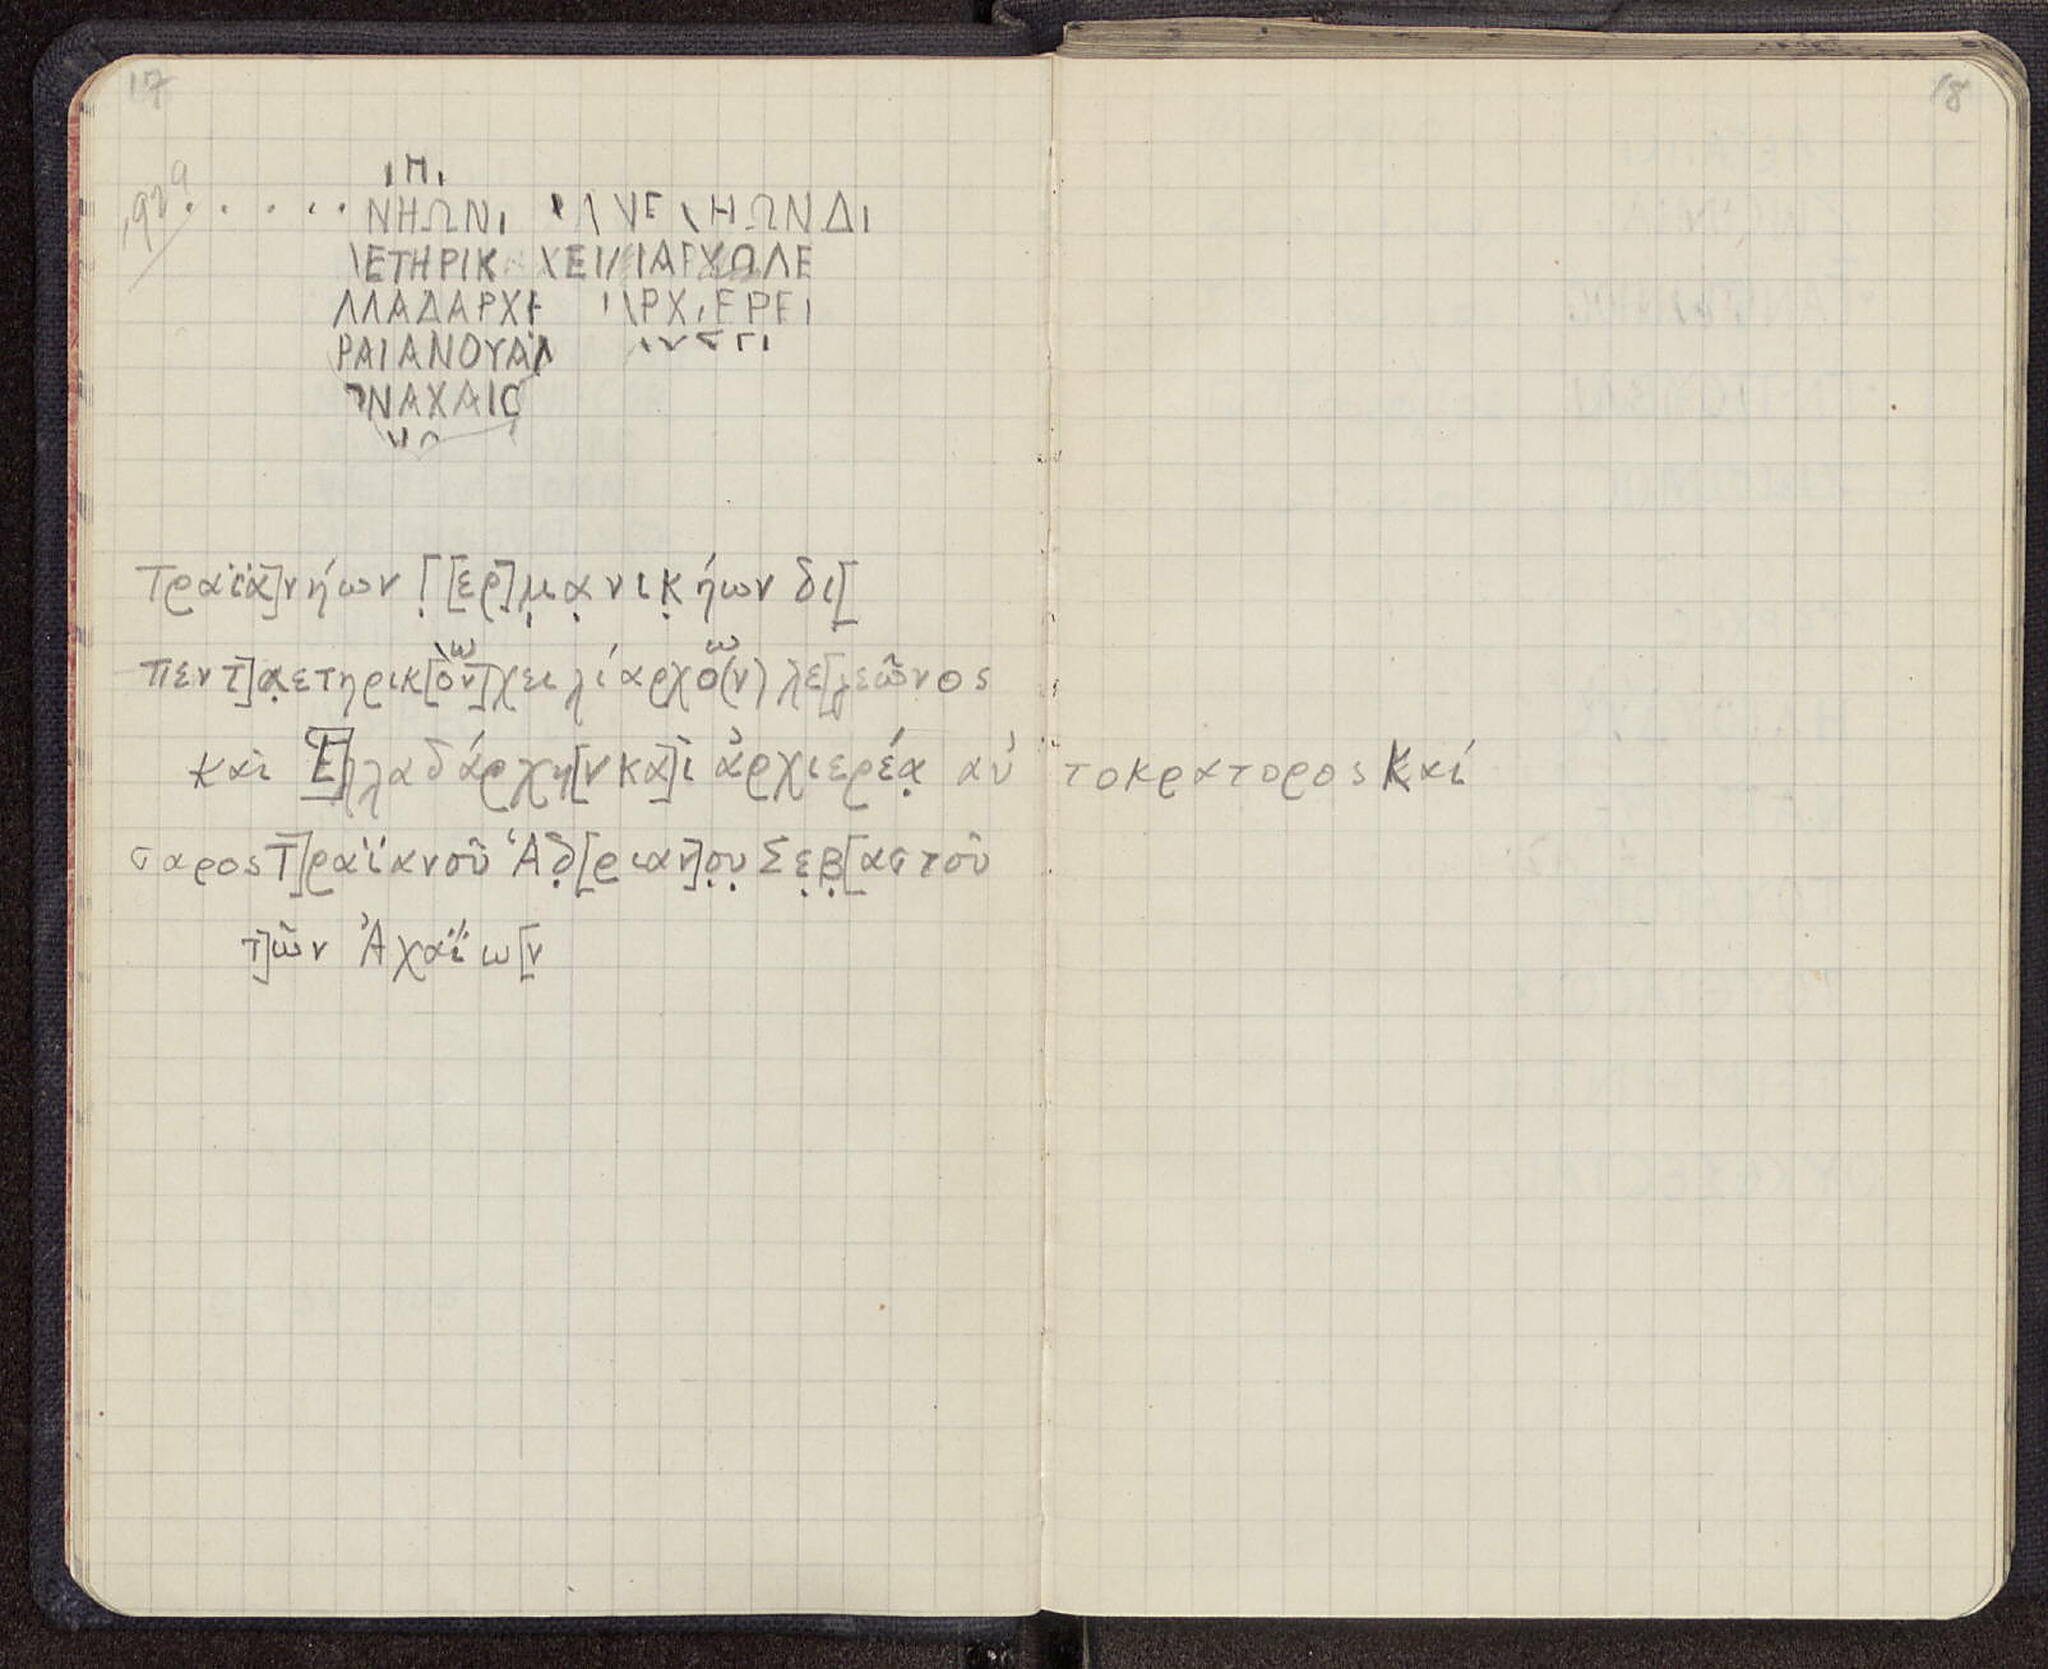 17
18
1929
. . . . . ΝΗΩΝΙ ΗΩΝΔΙ
ΕΤΗΡΙΚ ΧΕΙΛΙΑΡΧΩΛΕ
ΛΛΑΔΑΡΧΗ ΑΡΧΙΕΡΕΙ
ΡΑΙΑΝΟΥΑΔ
ΩΝΑΧΑΙΩ
Τραϊα]νήων Γ̣[ερ]μ̣α̣νικ̣ήων δι[
πεντ]α̣ετηρικ[ὸν] χειλίαρχο(ν) λε[γεῶνος
ω ω
καὶ Ἑ]λλαδάρχη[ν κα]ὶ ἀρχιερέα̣ αὐτοκρατορος Καί
σαρος Τ]ραϊανοῦ Ἁδ̣[ριαν]ο̣υ̣ Σε̣β̣[αστοῦ
τ]ῶν Ἀχαΐω[ν